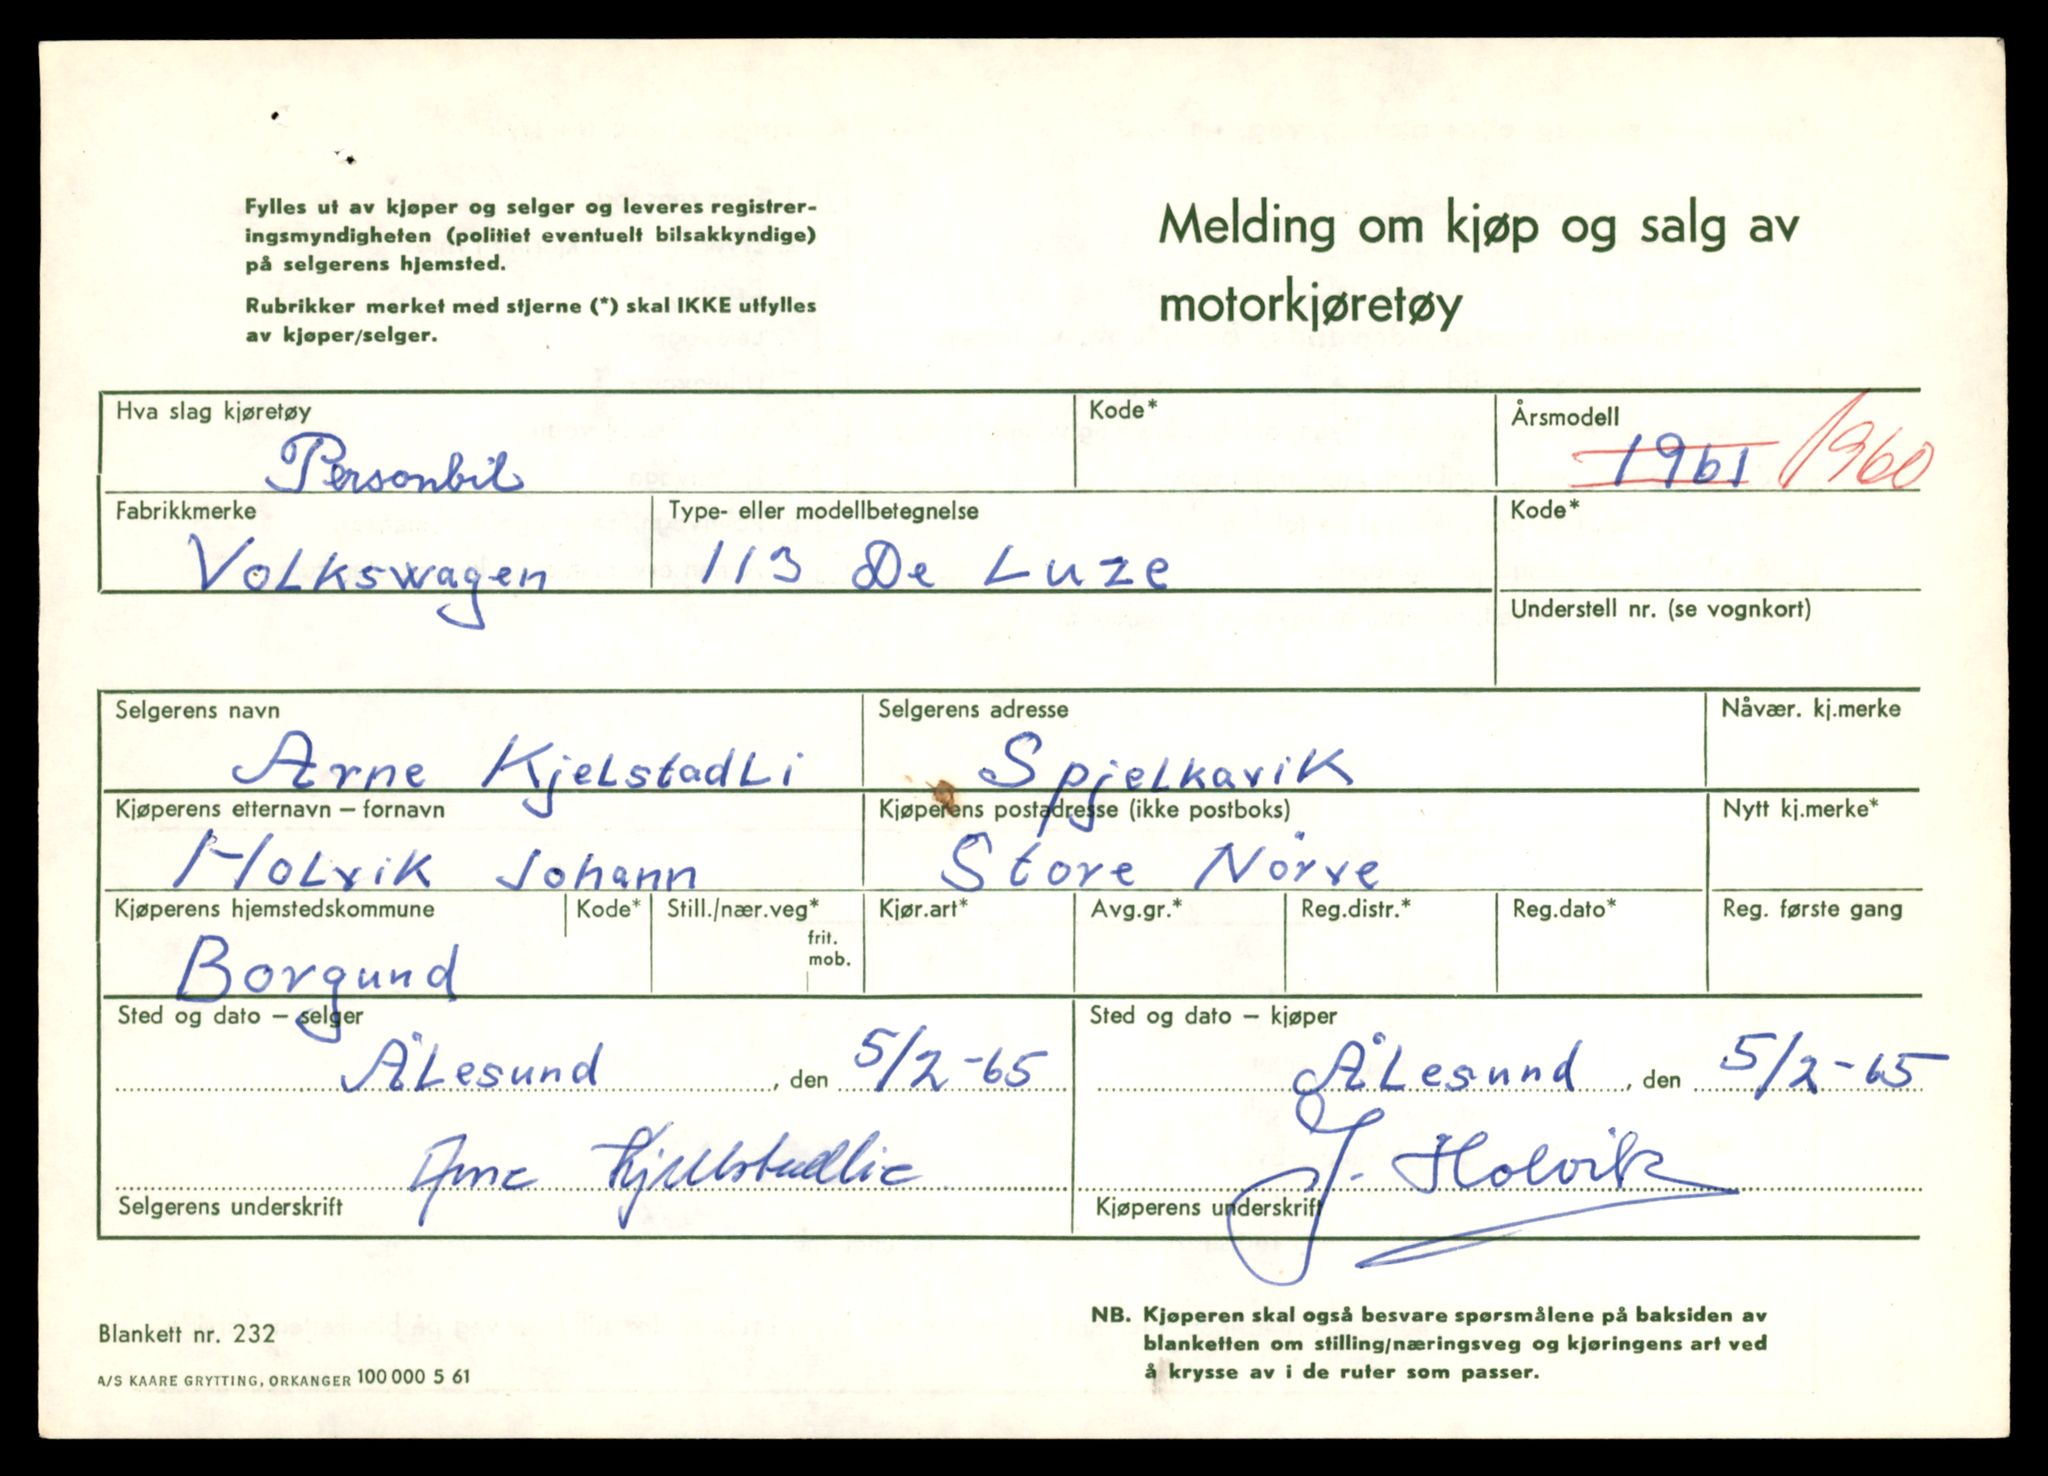 Fylles ut av kjøper og selger og leveres registrer-
ingsmyndigheten (politiet eventuelt bilsakkyndige)
på selgerens hjemsted.
Rubrikker merket med stjerne (*) skal IKKE utfylles
av kjøper/selger.
Melding om kjøp og salg av
motorkjøretøy
Hva slag kjøretøy
Personbil
Kode*
Årsmodell
1961 1960
Fabrikkmerke
Volkswagen
Type- eller modellbetegnelse
113 De Luze
Kode*
Understell nr. (se vognkort)
Selgerens navn
Arne Kjelstadli
Selgerens adresse
Spjelkavik
Nåvær. kj.merke
Kjøperens etternavn – fornavn
Holvik Johann
Kjøperens postadresse (ikke postboks)
Store Nörve
Nytt kj.merke*
Kjøperens hjemstedskommune
Borgund
Kode*
Still./nær.veg*
frit.
mob.
Kjør.art*
Avg.gr.*
Reg.distr.*
Reg.dato*
Reg. første gang
Sted og dato – selger
Ålesund, den 5/2-65
Sted og dato – kjøper
Ålesund, den 5/2-65
Arne Kjellstadlie
Selgerens underskrift
J. Holvik
Kjøperens underskrift
Blankett nr. 232
A/S KAARE GRYTTING, ORKANGER 100 000 5 61
NB. Kjøperen skal også besvare spørsmålene på baksiden av
blanketten om stilling/næringsveg og kjøringens art ved
å krysse av i de ruter som passer.